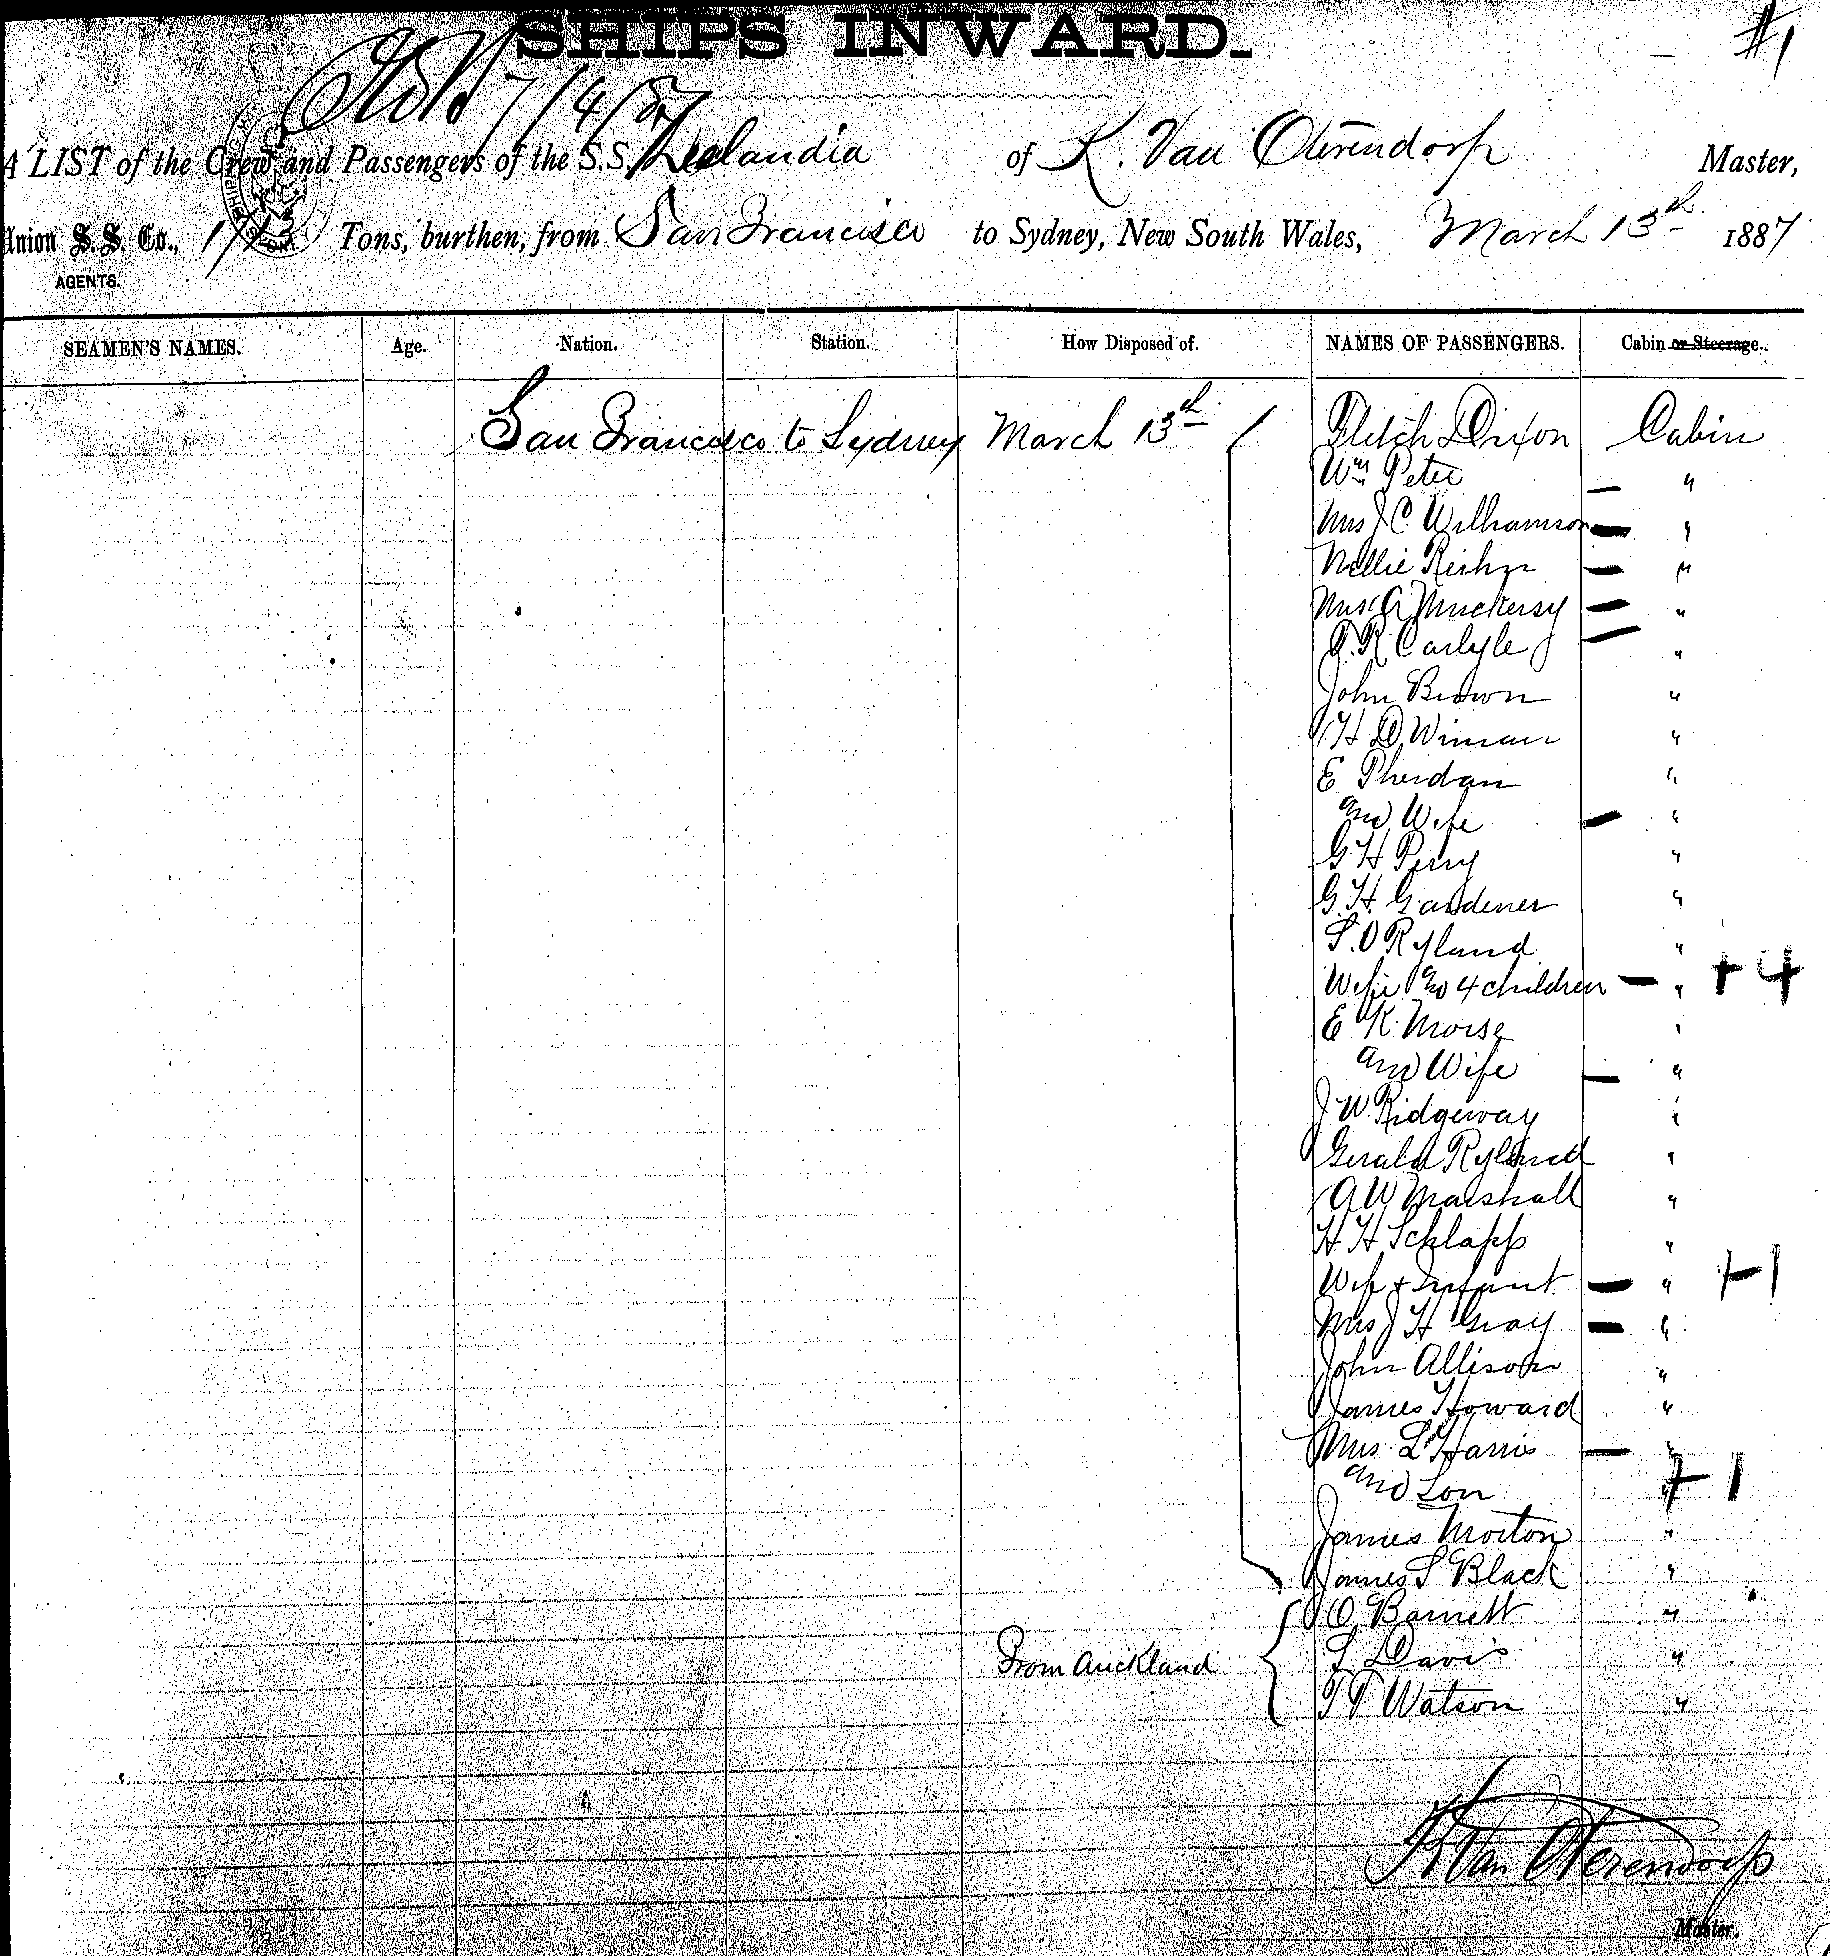 SHIPS INWARD.
#1
7/4/87
A LIST of the Crew and Passengers of the S.S. Zealandia of K. Van Oterendorp Master,
Union S.S. Co., Tons, burthen, from San Francisco to Sydney, New South Wales, March 13th 1887
AGENTS.
SEAMEN'S NAMES. Age. Nation. Station. How Disposed of. NAMES OF PASSENGERS. Cabin or Steerage.
San Francisco to Sydney March 13th Fletch Dixon Cabin
Wm Peter "
Mrs J C Williamson "
Nellie "
Mrs A Muckersy "
Carlyle "
John Brown "
H D Winman "
E "
and Wife "
G H Perry "
G. H. Gardener "
S. O Ryland "
Wife and 4 children " +4
E K Morse "
and Wife "
J W Ridgeway "
Gerald Ryland "
A W Marshall "
H H Schlapp "
Wife + Infant " +1
Mrs J H Gray "
John Allison "
James Howard "
Mrs L Harris "
and Son " +1
James Morton "
James S Black "
O Barnett "
From Auckland S Davis "
T T Watson "
K Van Oterendorp
Master.